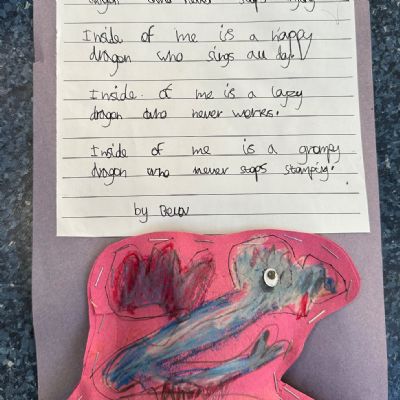 dragon who never stops
Inside of me is a happy
dragon who sings all day.
Inside. of me is a lazy
dragon who never works.
Inside of me is a grumpy
dragon who never stops stamping.
by